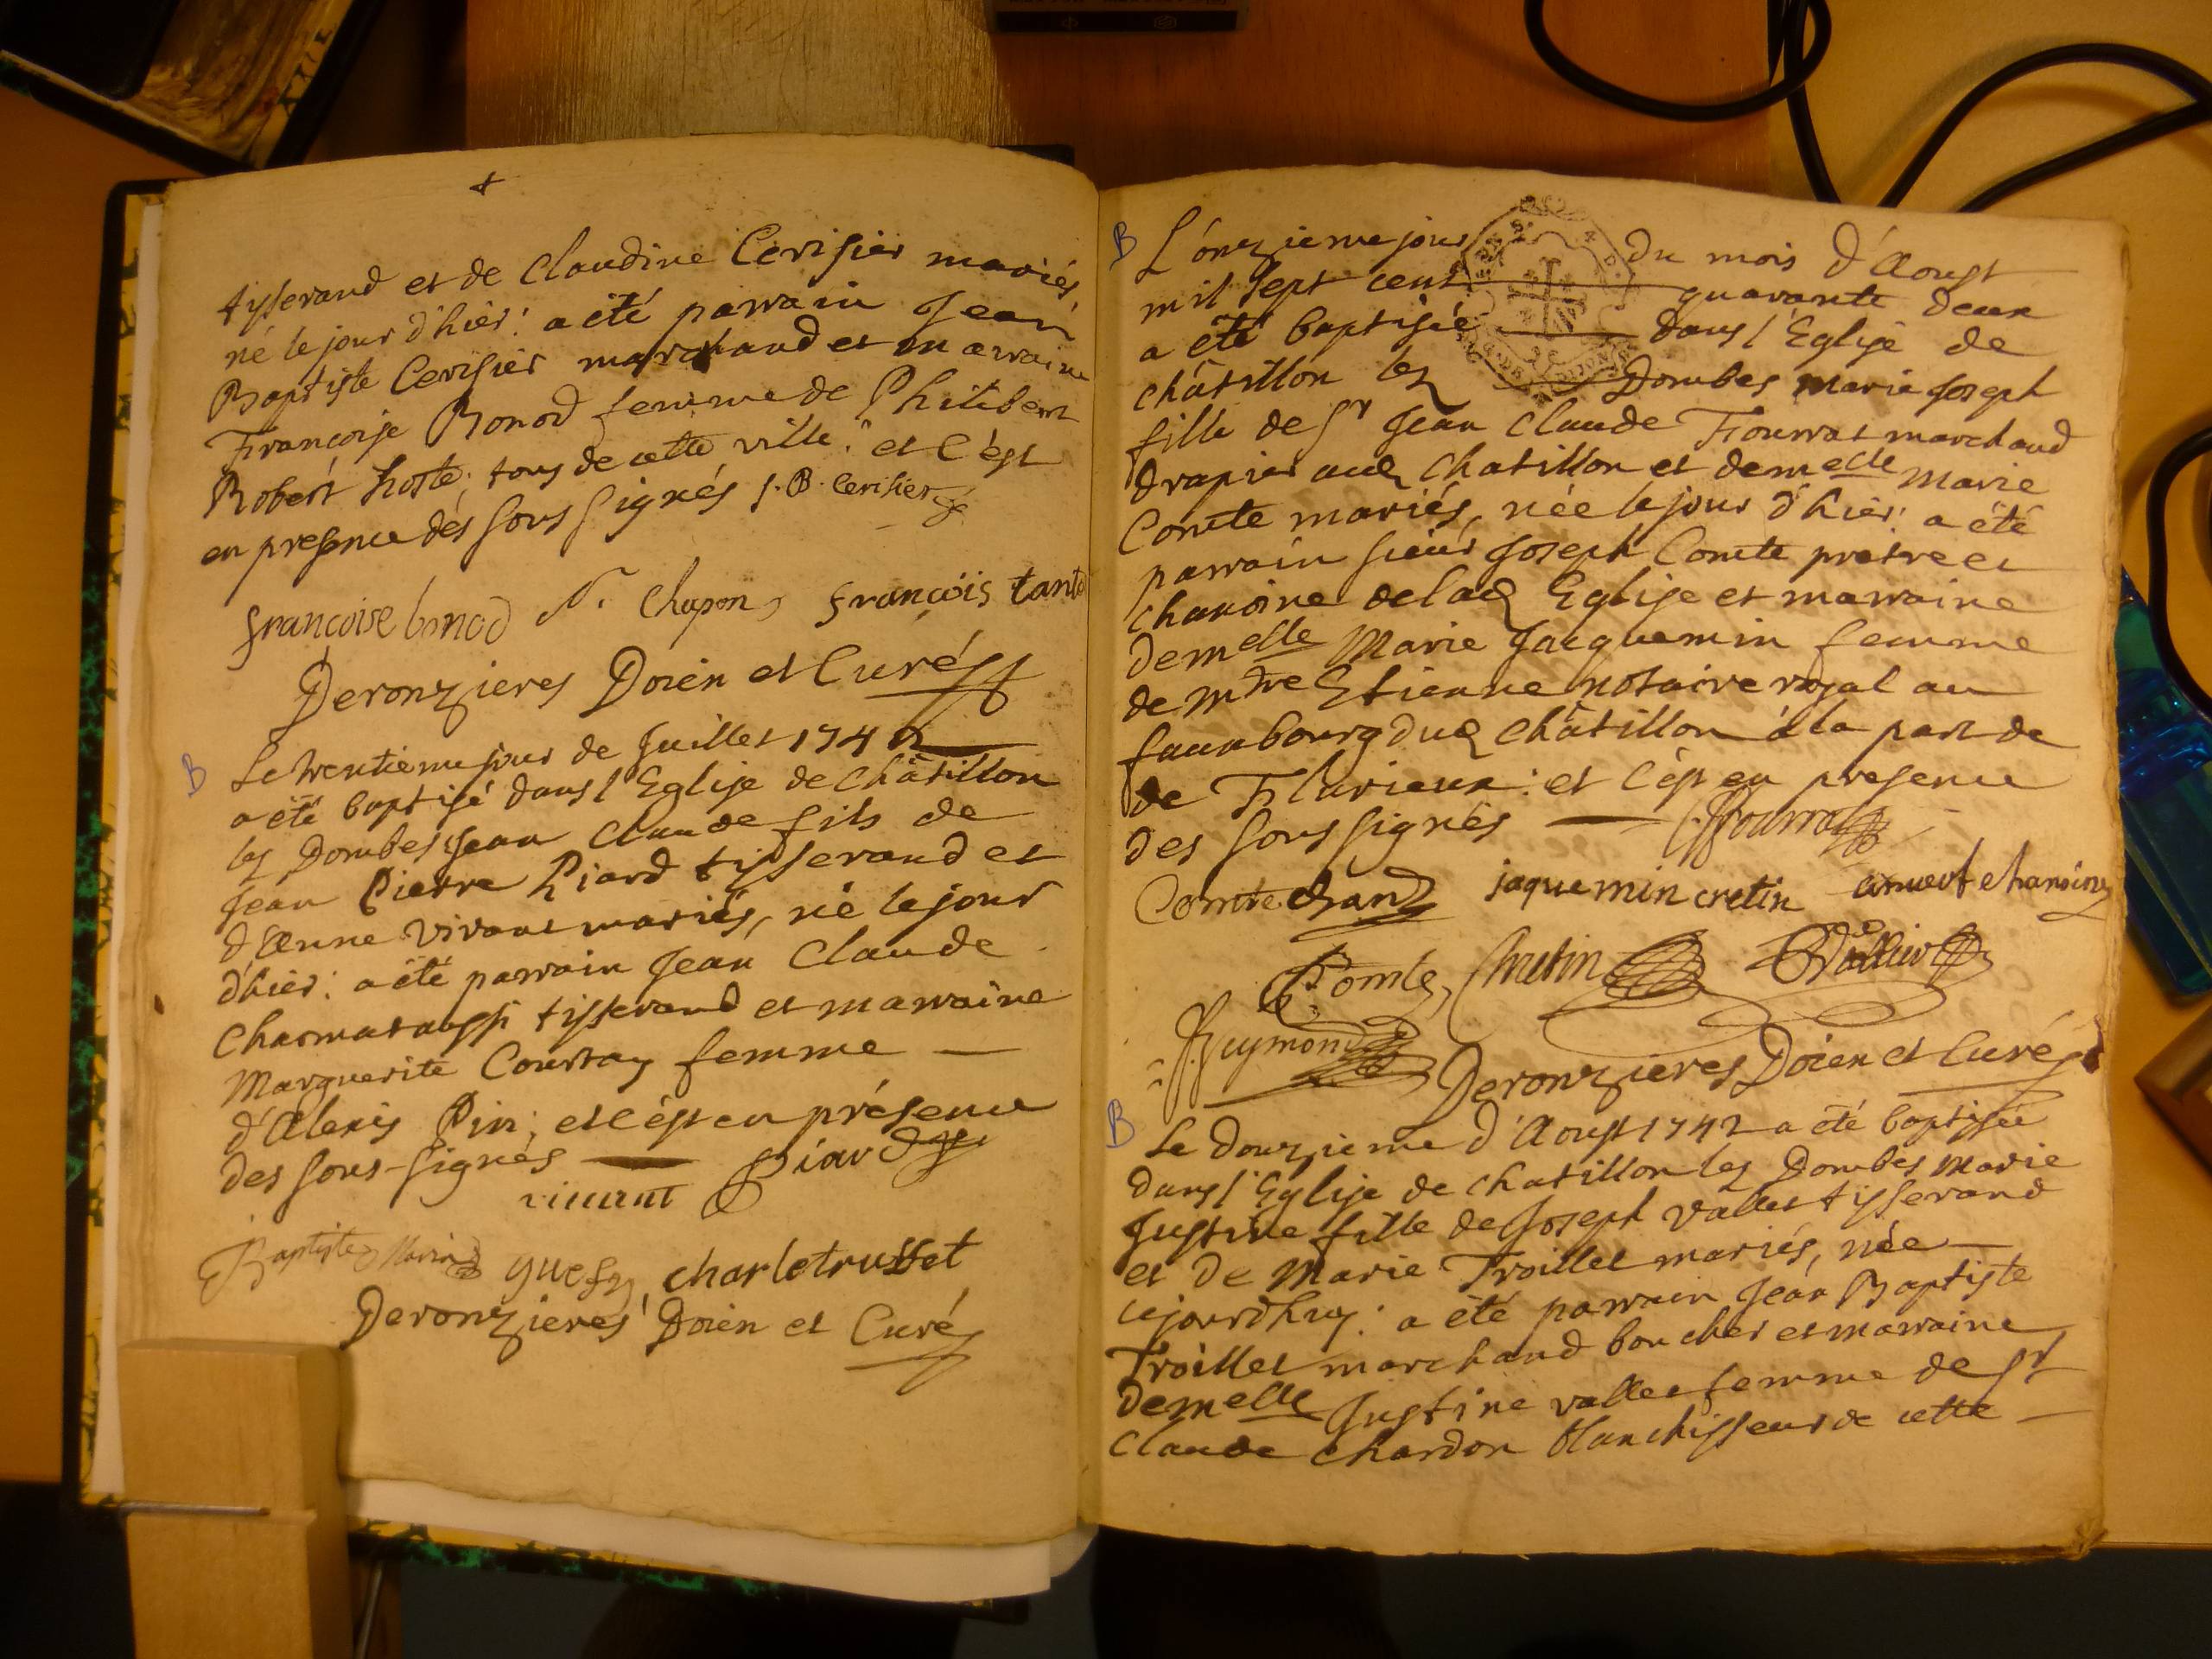 tisserand et de Claudine Cerisier mariés,
né le jour d'hier: a été parrain Jean
Baptiste Cerisier marchand et marraine
Francoise Bonod femme de Philibert
Robert hoste; tous de cette ville: et c'est
en presence des sous signés J. B. Cerisier
françoise bonod N. Chapon françois tant
Deronzieres Doien et Curé
B Le trentieme jour de Juillet 1742
a été baptisé dans l'Eglise de Châtillon
les Dombes Jean Claude fils de
Jean Pierre Piard tisserand et
d'Anne Vivant mariés, né le jour
d'hier: a été parrain Jean Claude
Charmat aussi tisserand et marraine
Marguerite Courtay femme
d'Alexis Pin; et c'est en présence
des sous-signés
vicunt Piard
Baptiste charle trusset
Deronzieres Doien et Curé
B L'onzieme jour du mois d'Aoust
mil sept cent quarante deux
a été baptisée dans l'Eglise de
châtillon les Dombes Marie Joseph
fille de Sr Jean Claude Fourrat marchand
drapier aud chatillon et demelle Marie
Comte mariés, née le jour d'hier: a été
parrain sieur Joseph Comte pretre et
chanoine de lad Eglise et marraine
demelle Marie Jacquemin femme
de Mtre Etienne notaire royal au
fauxbourg dud châtillon à la part de
de Flurieux: et c'est en presence
des sous signés Fourrat
Comte chan jaquemin cretin chanoine
Comte Chretin
Reymond
Deronzieres Doien et Curé
B Le douzieme d'Aoust 1742 a été baptisée
dans l'Eglise de chatillon les Dombes Marie
Justine fille de Joseph vallet tisserand
et de Marie Troillet mariés, née
cejourdhuy: a été parrain Jean Baptiste
Troillet marchand boucher et marraine
demelle Justine vallet femme de Sr
Claude chardon blanchisseur de cette